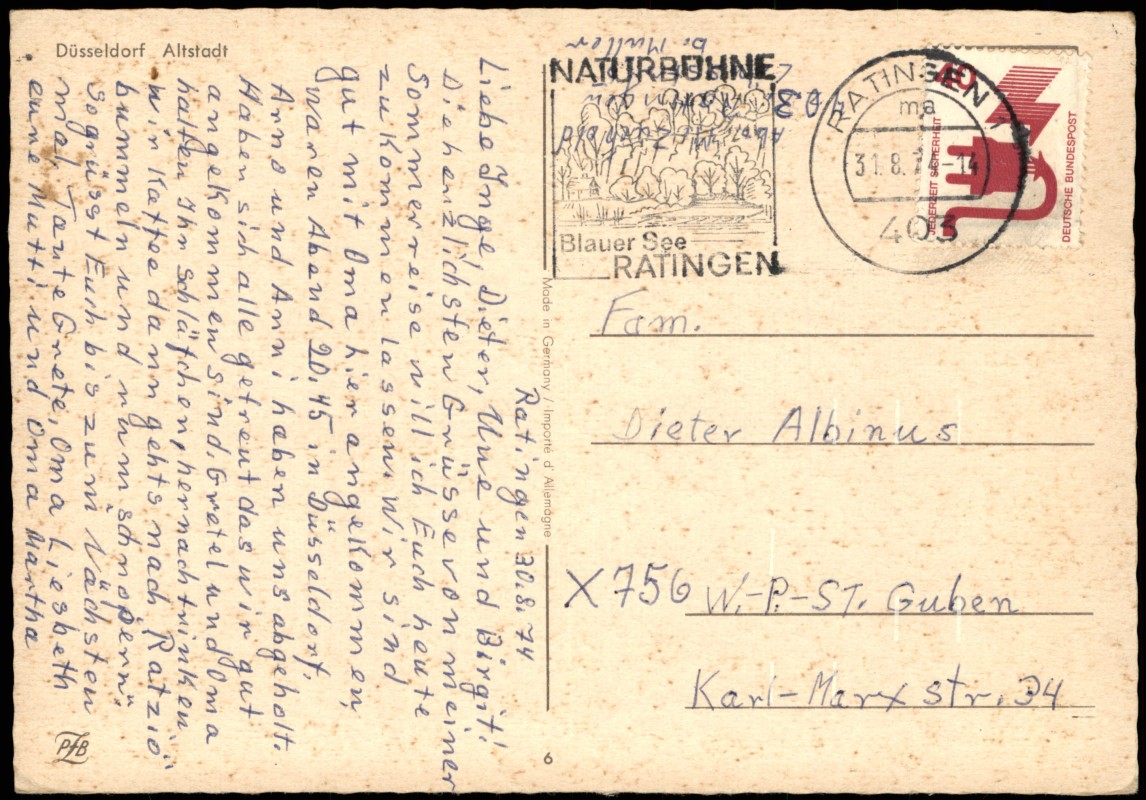 Düsseldorf Altstadt
Ratingen 30.8.74
Liebe Inge, Dieter, Uwe und Birgit!
Die herzlichsten Grüsse von meiner
Sommerreise will ich Euch heute
zukommen lassen. Wir sind
gut mit Oma hier angekommen,
waren Abend 20.45 in Düsseldorf,
Arno und Anni haben uns abgeholt.
Haben sich alle gefreut das wir gut
angekommen sind. Gretel und Oma
halten Ihn Schläfchen, hernach trinken
wir Kaffee dann gehts nach "Ratzio"
bummeln und rum schnopern.
So grüsst Euch bis zum Nächsten
mal Tante Grete, Oma Liesbeth
Mutti und Oma Martha
PfB
Made in Germany / Importé d'Allemagne
6
b. Müller
403 Ratingen
NATURBÜHNE
Blauer See
RATINGEN
RATINGEN 1
ma
31.8.
-14
403
40
JEDERZEIT SICHERHEIT
DEUTSCHE BUNDESPOST
Fam.
Dieter Albinus
X 756 W.-P.-ST. Guben
Karl-Marxstr. 34